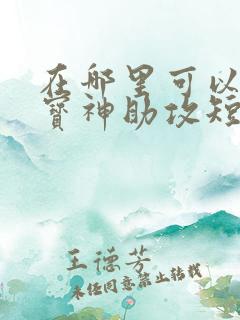 在那里可以
宝神助攻短
王德芳
未经同意禁止转载